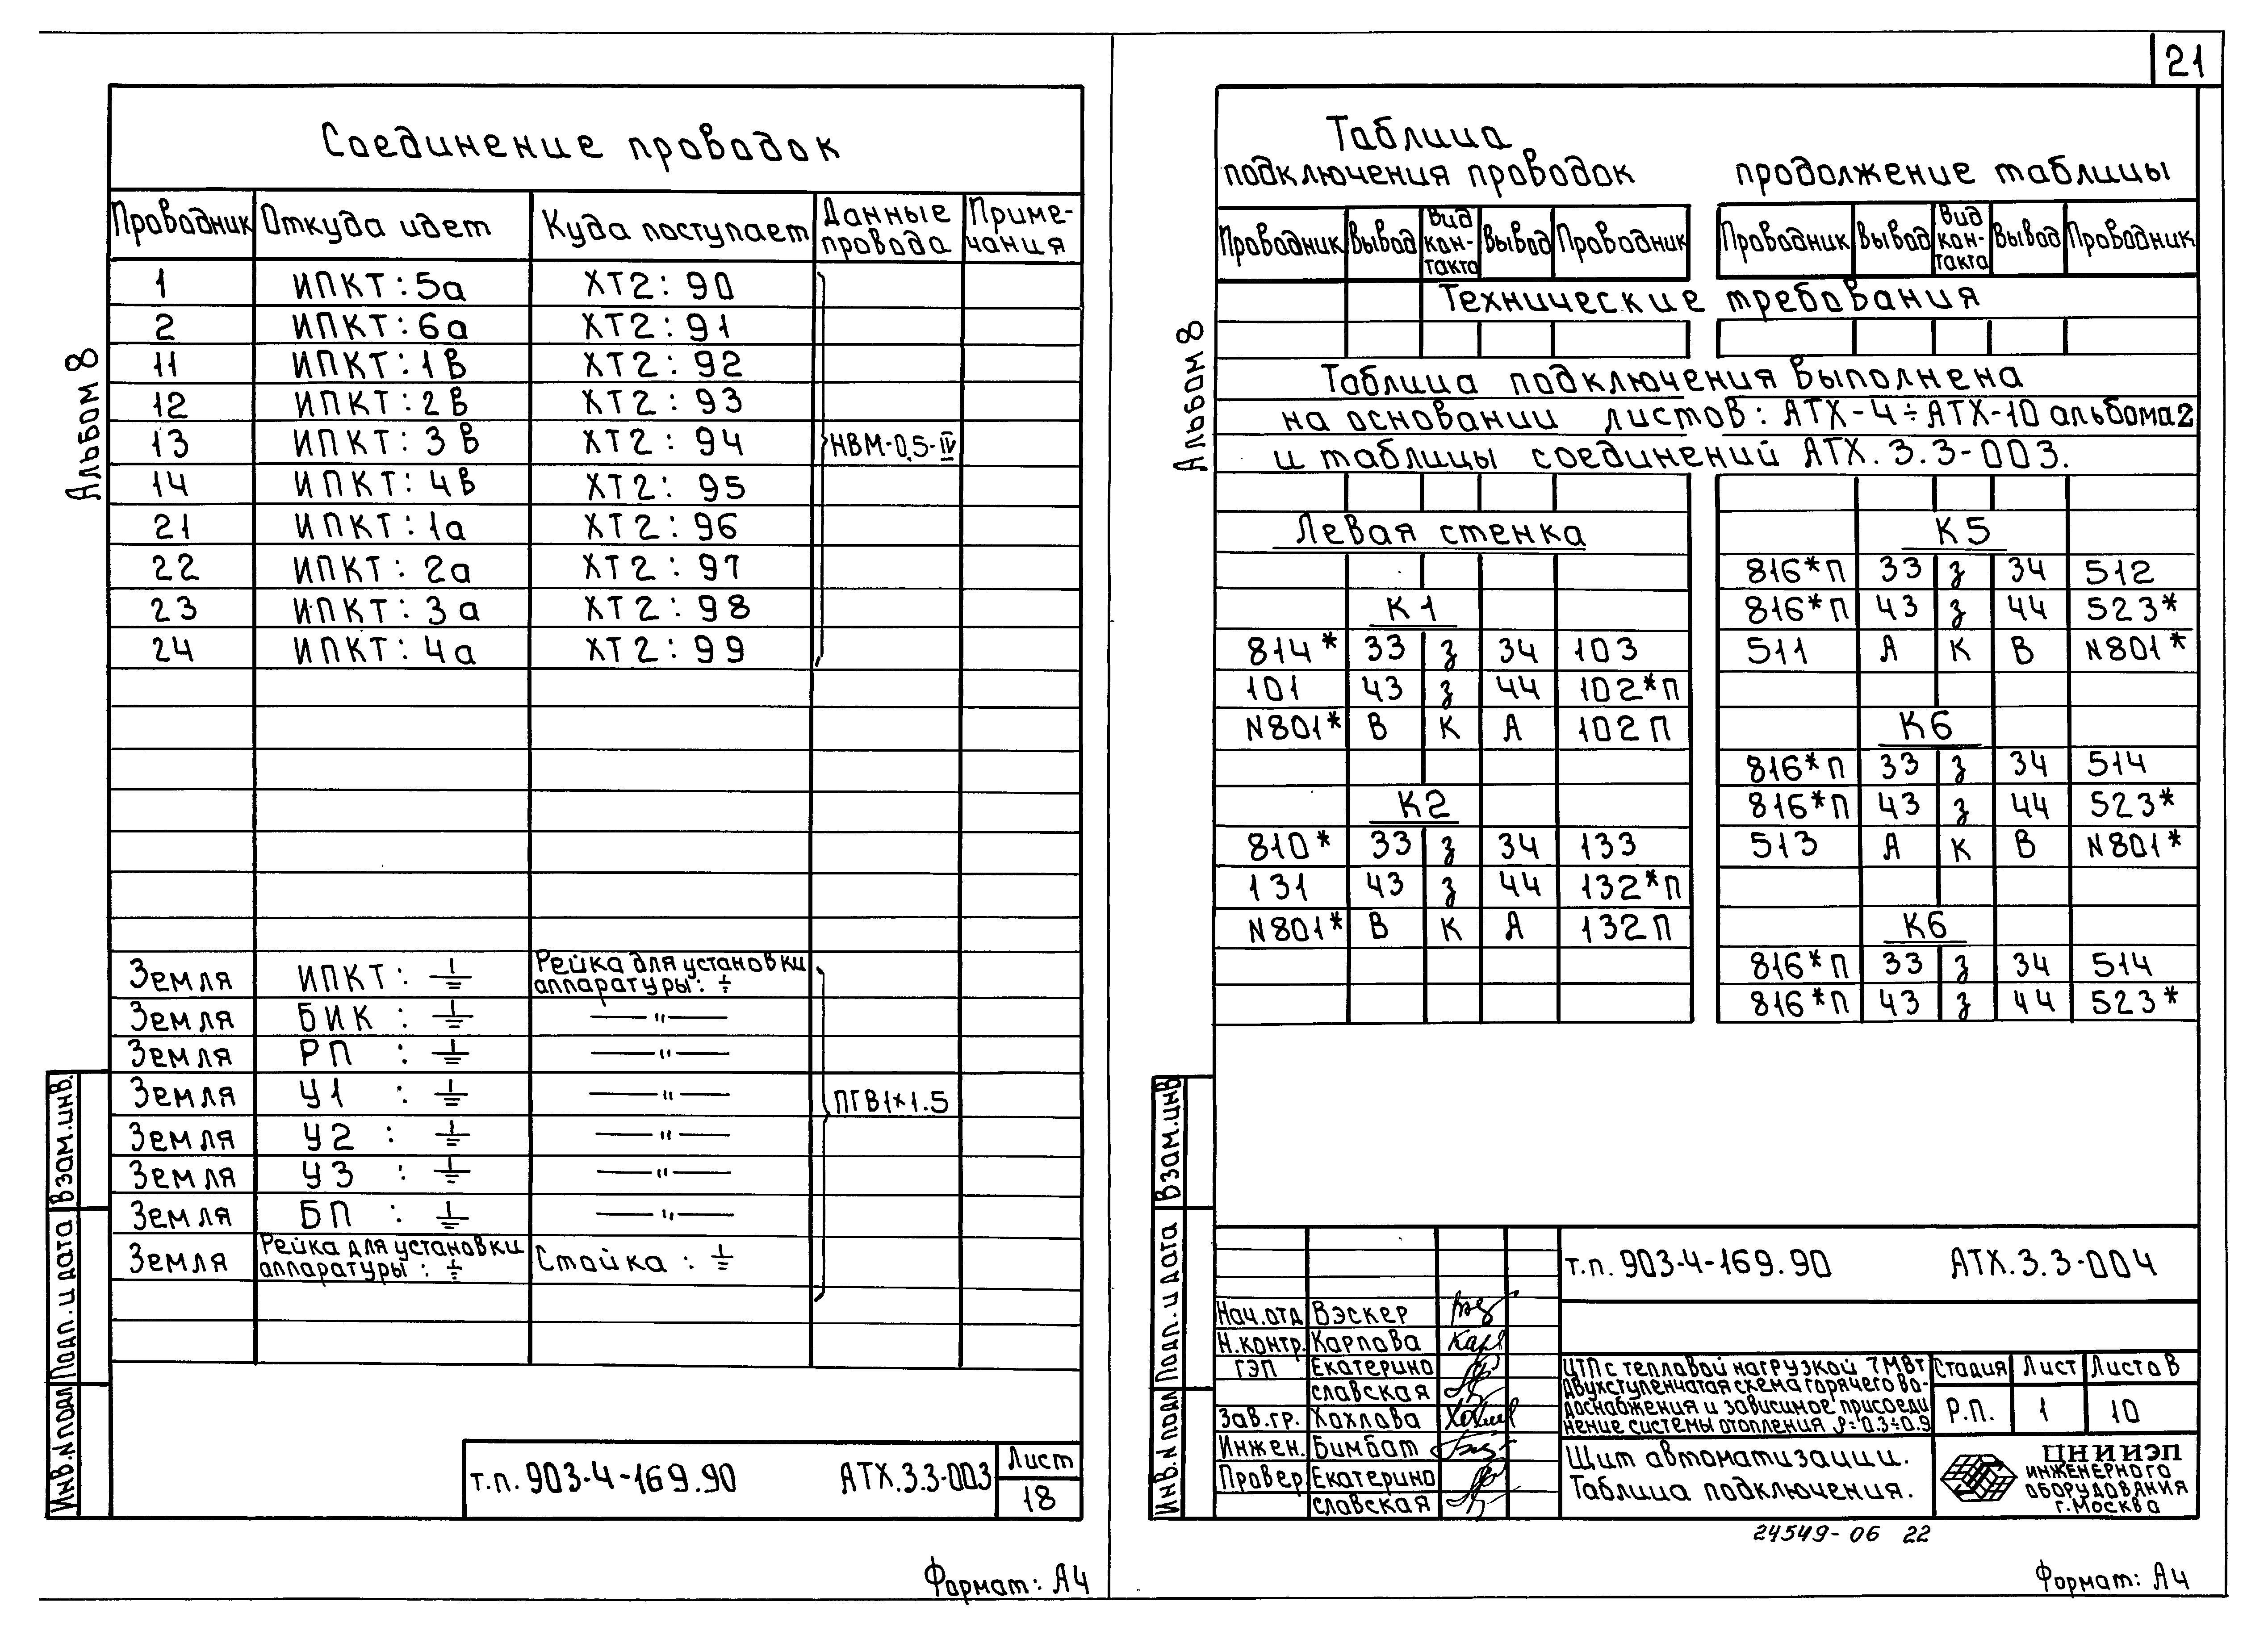 21
Соединение проводок
Проводник Откуда идет Куда поступает Данные провода Приме-чания
1 ИПКТ:5а ХТ2:90
2 ИПКТ:6а ХТ2:91
11 ИПКТ:1В ХТ2:92
12 ИПКТ:2В ХТ2:93
13 ИПКТ:3В ХТ2:94 НВМ-0,5-IV
14 ИПКТ:4В ХТ2:95
21 ИПКТ:1а ХТ2:96
22 ИПКТ:2а ХТ2:97
23 ИПКТ:3а ХТ2:98
24 ИПКТ:4а ХТ2:99
Земля ИПКТ: ⏚ Рейка для установки аппаратуры: ⏚
Земля БИК : ⏚ —"—
Земля РП : ⏚ —"—
Земля У1 : ⏚ —"— ПГВ1×1.5
Земля У2 : ⏚ —"—
Земля У3 : ⏚ —"—
Земля БП : ⏚ —"—
Земля Рейка для установки аппаратуры: ⏚ Стойка: ⏚
т.п. 903-4-169.90 АТХ.3.3-003 Лист
18
Альбом 8
Взам.инв.
Подп. и дата
Инв.N подл
Формат: А4
Таблица
подключения проводок
продолжение таблицы
Проводник Вывод Вид кон-такта Вывод Проводник
Проводник Вывод Вид кон-такта Вывод Проводник
Технические требования
Таблица подключения выполнена
на основании листов: АТХ-4÷АТХ-10 альбома 2
и таблицы соединений АТХ.3.3-003.
Левая стенка
К1
814* 33 з 34 103
101 43 з 44 102*П
N801* В К А 102П
К2
810* 33 з 34 133
131 43 з 44 132*П
N801* В К А 132П
К5
816*П 33 з 34 512
816*П 43 з 44 523*
511 А К В N801*
К6
816*П 33 з 34 514
816*П 43 з 44 523*
513 А К В N801*
К6
816*П 33 з 34 514
816*П 43 з 44 523*
Альбом 8
Взам.инв
Подп. и дата
Инв.N подл
т.п. 903-4-169.90 АТХ.3.3-004
Нач.отд Вэскер
Н.контр. Карпова
ГЭП Екатерино
славская
Зав.гр. Хохлова
Инжен. Бимбат
Провер Екатерино
славская
ЦТП с тепловой нагрузкой 7МВт
двухступенчатая схема горячего во-
доснабжения и зависимое присоеди
нение системы отопления ρ=0.3÷0.9
Стадия Лист Листов
Р.П. 1 10
Щит автоматизации.
Таблица подключения.
ЦНИИЭП
ИНЖЕНЕРНОГО
ОБОРУДОВАНИЯ
г.Москва
24549-06 22
Формат: А4